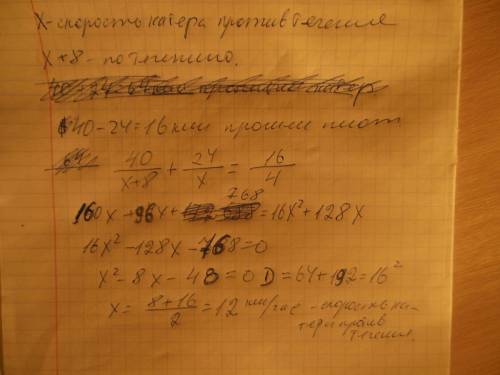 X - скорость катера против течения
X+8 - по течению.
40-24=16 км прошел плот
40/(x+8) + 24/x = 16/4
160x + 96x + 768 = 16x² + 128x
16x² - 128x - 768 = 0
x² - 8x - 48 = 0 D = 64 + 192 = 16²
x = (8+16)/2 = 12 км/час - скорость ка-
тера против
течения.